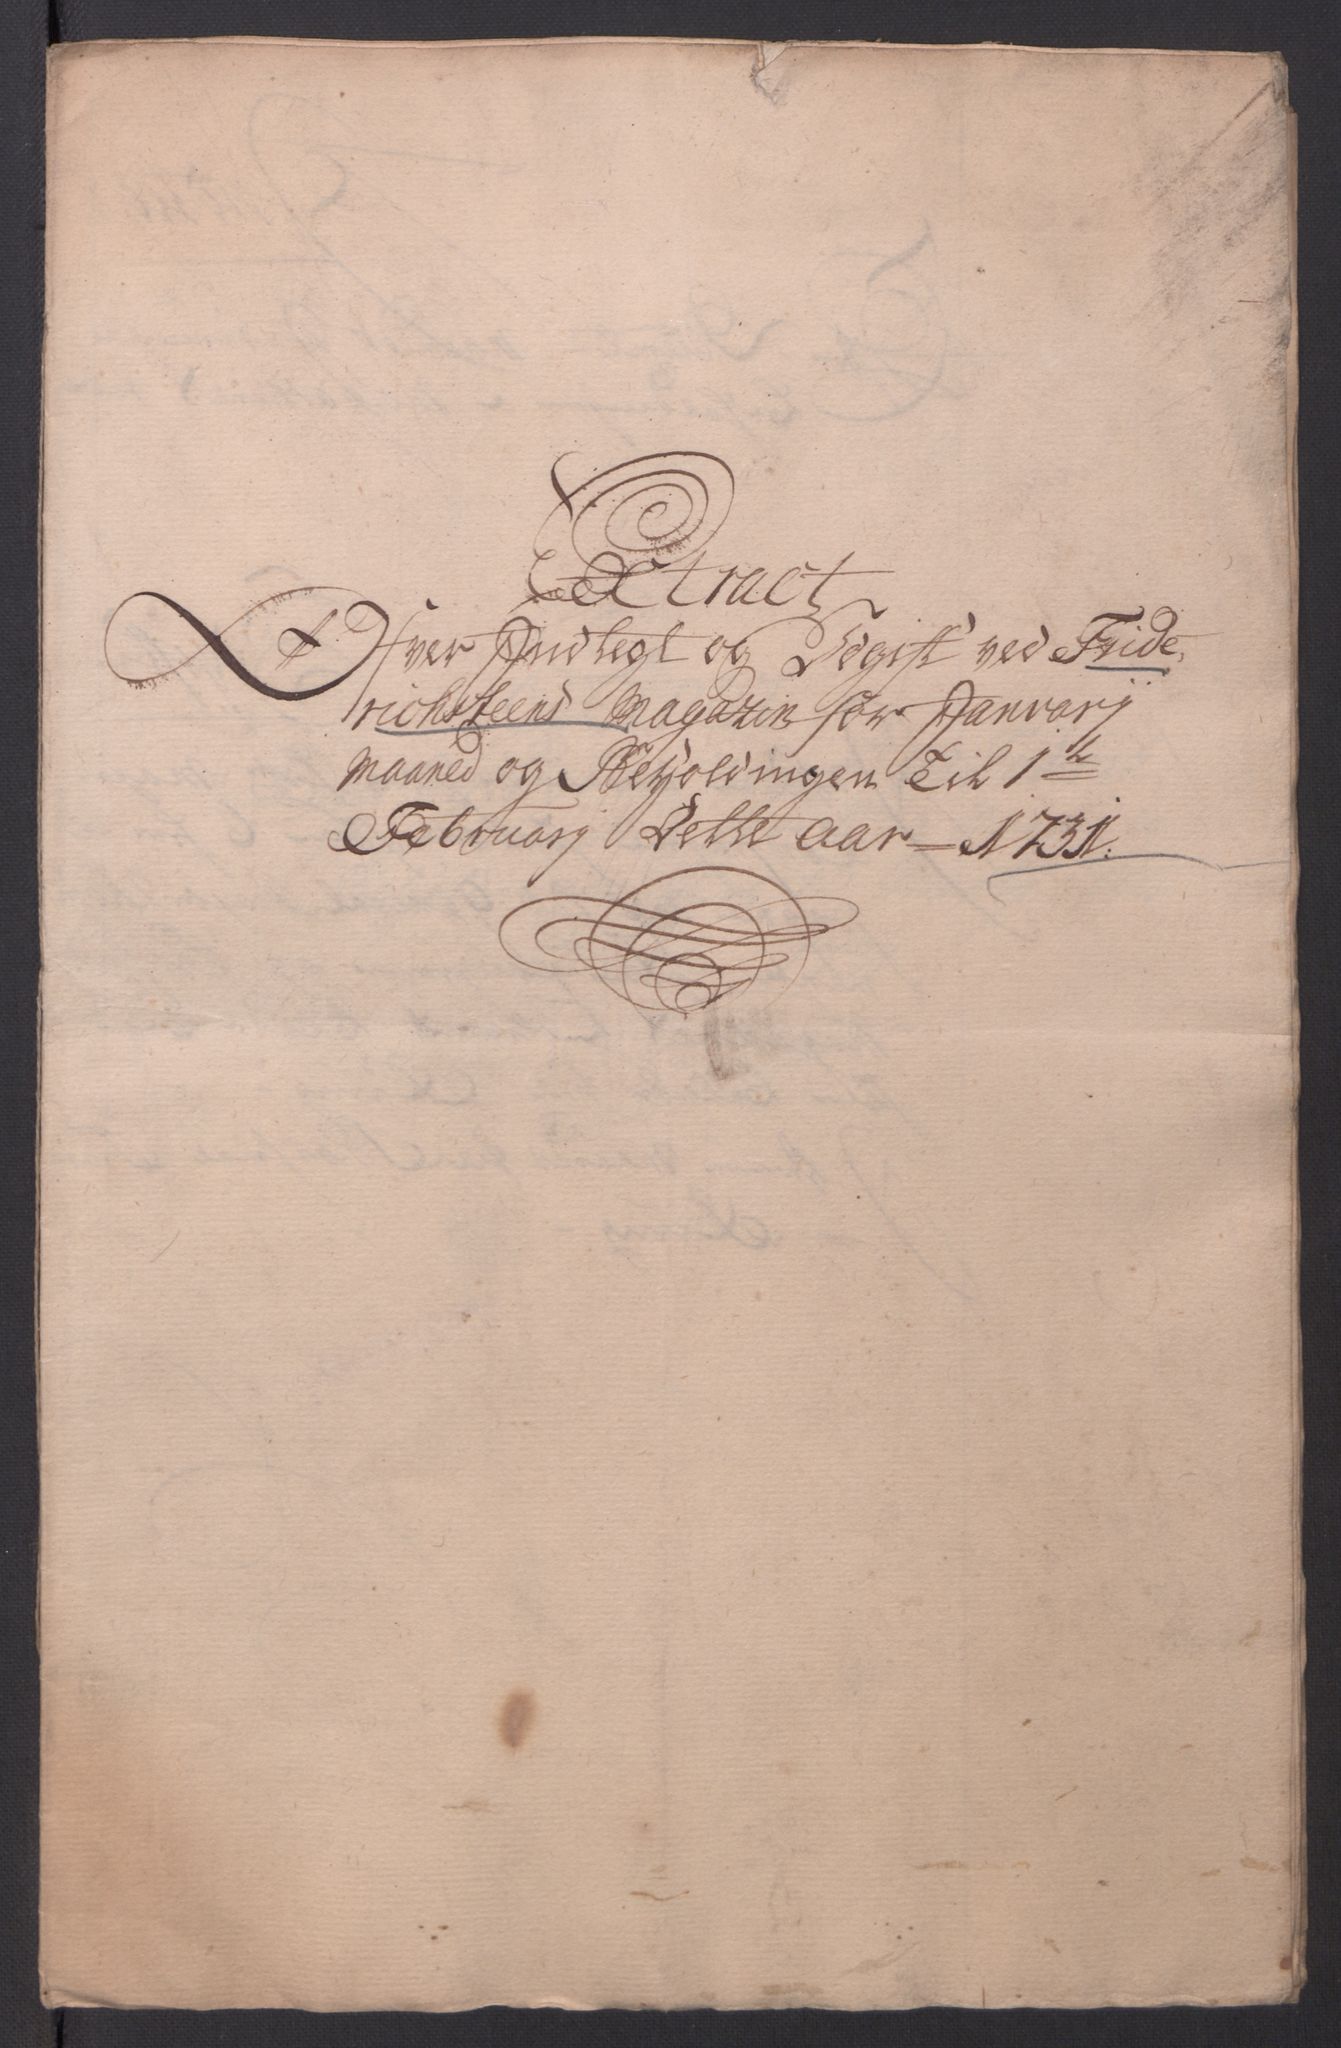 Extract
Ofver Indtegt og Udgift ved Fride,
richsteens Magazin for Januarij
Maaned og Beholdingen Til 1te
Februarij Dette aar = 1731.